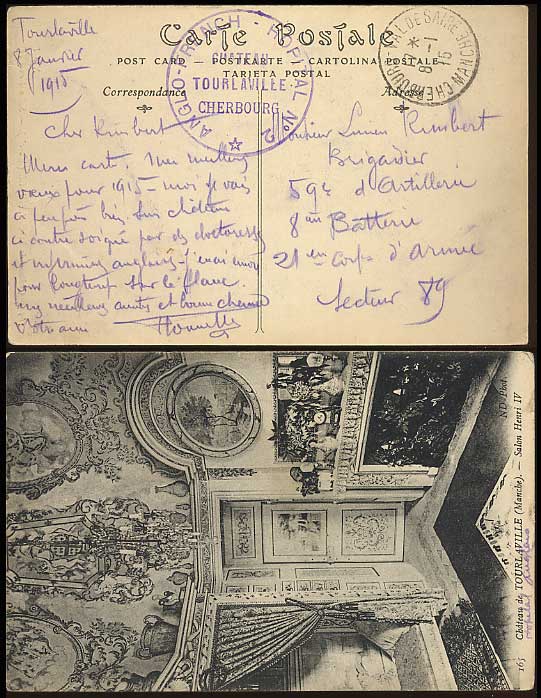 Carte Postale
POST CARD — POSTKARTE — CARTOLINA POSTALE
TARJETA POSTAL
Correspondance
Adresse
ANGLO-FRENCH-HOPITAL No 2
CHATEAU
TOURLAVILLE
CHERBOURG
CHERBOURG
8-1
15
Tourlaville
8 Janvier
1915
Cher Rimbert
Merci carte. Mes meilleurs
vœux pour 1915 — moi je vais
à peu près bien. Suis château
ci contre soigné par des doctoresses
et infirmières anglaises —
pour longtemps sur le flanc.
meilleures et bonne chance
Votre ami
Monsieur Lucien Rimbert
Brigadier
59e d'Artillerie
8em Batterie
21em corps d'Armée
Secteur 89
165 Château de TOURLAVILLE (Manche). — Salon Henri IV
ND Phot.
Hopital Anglais